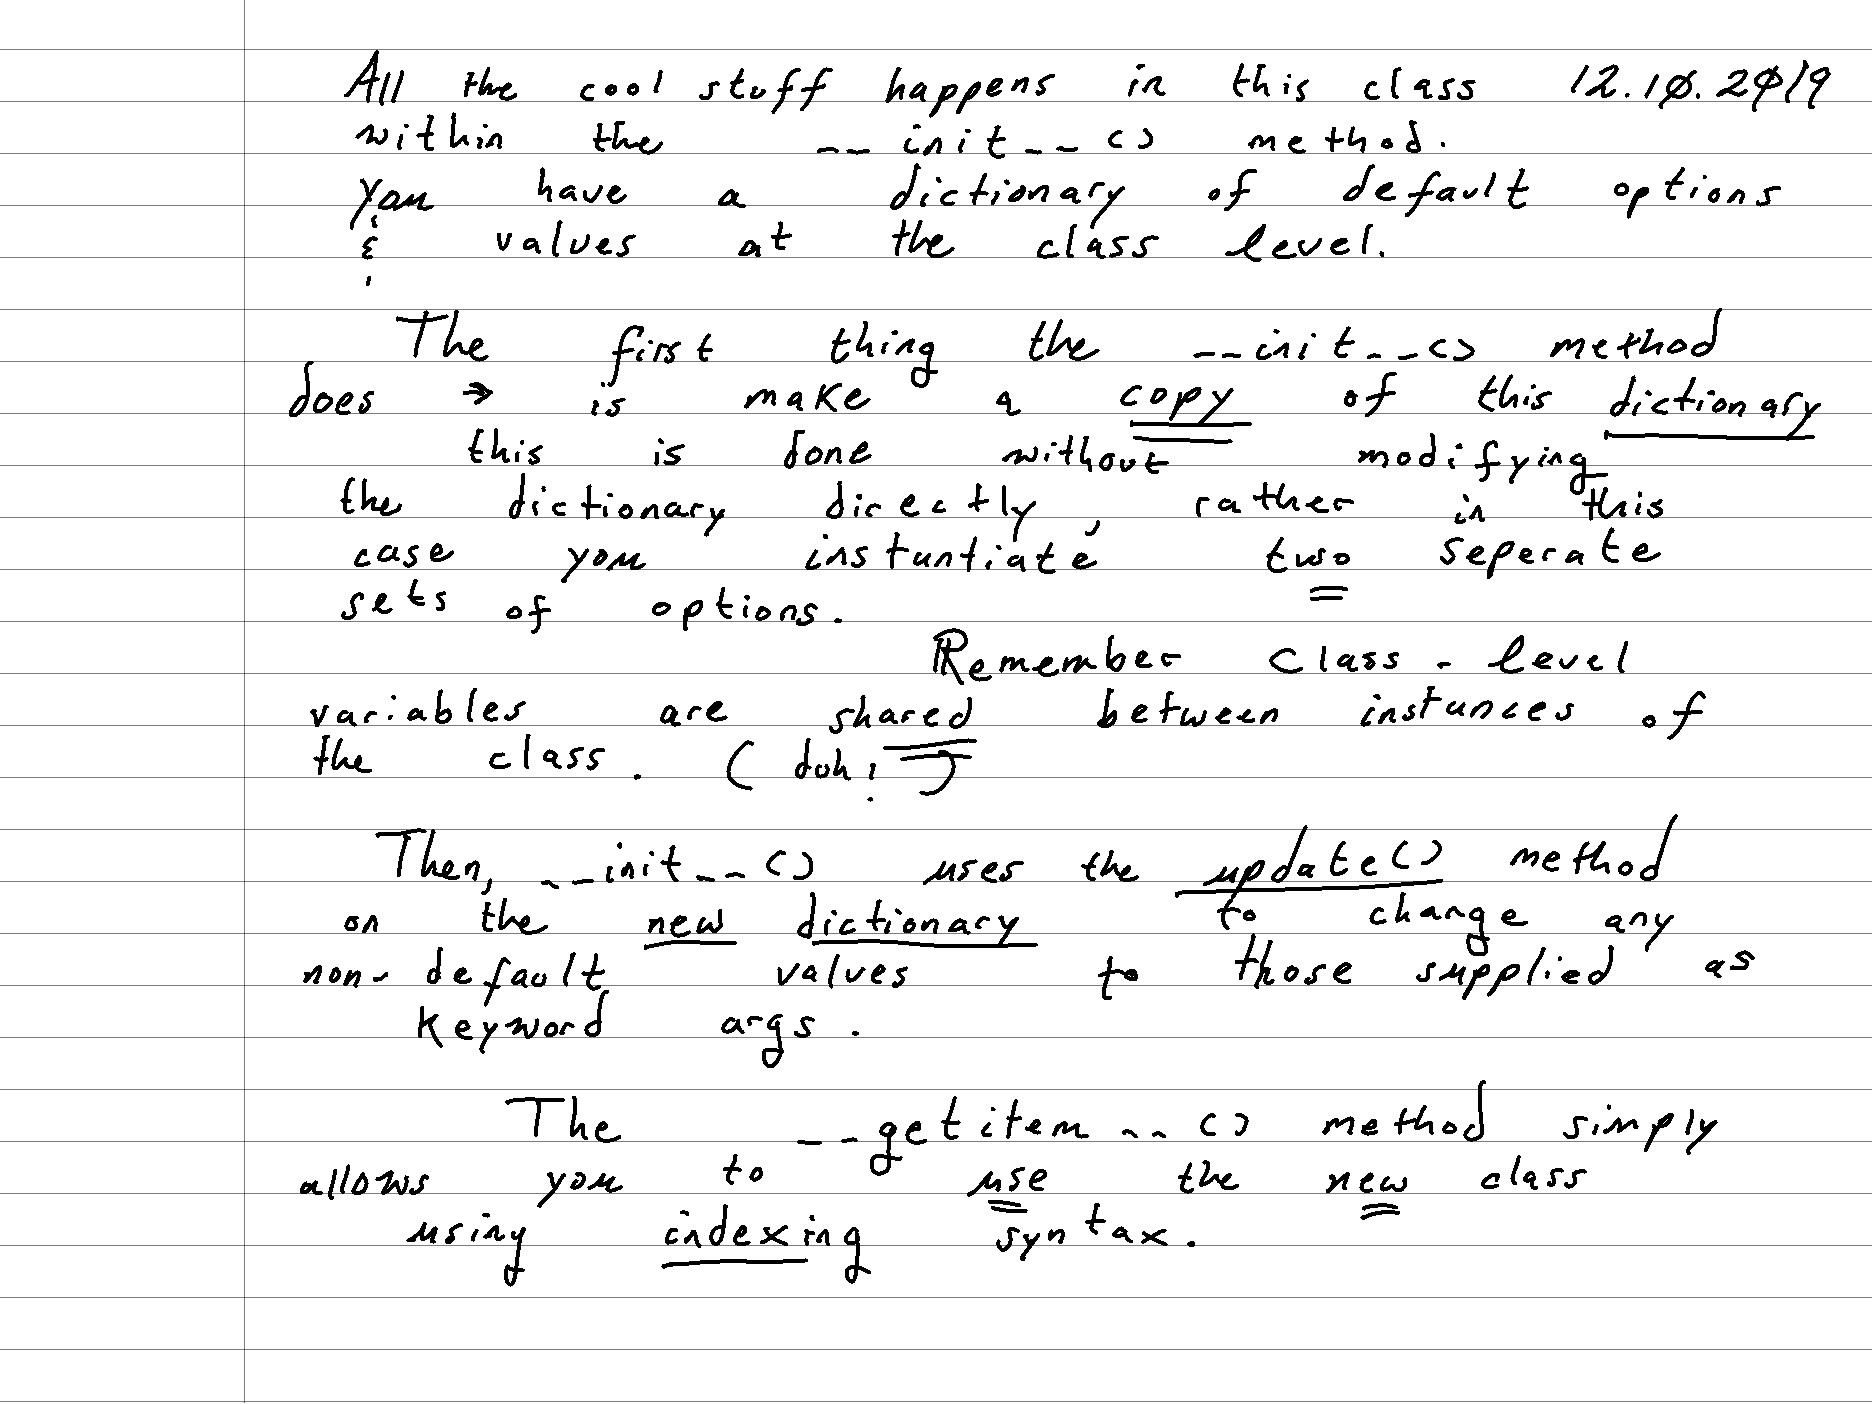 All the cool stuff happens in this class 12.10.2019
within the __init__() method.
You have a dictionary of default options
& values at the class level.
The first thing the __init__() method
does → is make a copy of this dictionary
this is done without modifying
the dictionary directly, rather in this
case you instuntiate two seperate
sets of options.
Remember class-level
variables are shared between instunces of
the class. (doh!)
Then, __init__() uses the update() method
on the new dictionary to change any
non-default values to those supplied as
keyword args.
The __getitem__() method simply
allows you to use the new class
using indexing syntax.